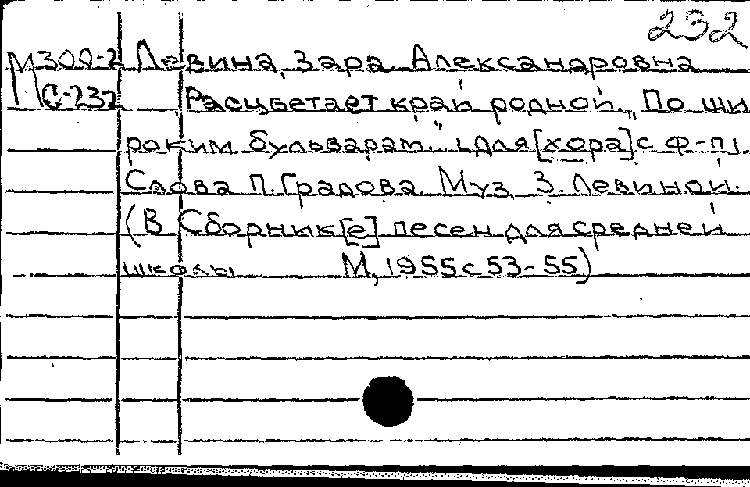 232
М308-2 Левина, Зара Александровна
С-232 Расцветает край родной. „По ши
роким бульварам..." [Для [хора] с ф-п].
Слова П. Градова. Муз. З. Левиной.
(В Сборник[е] песен для средней
школы М, 1955 с 53-55)